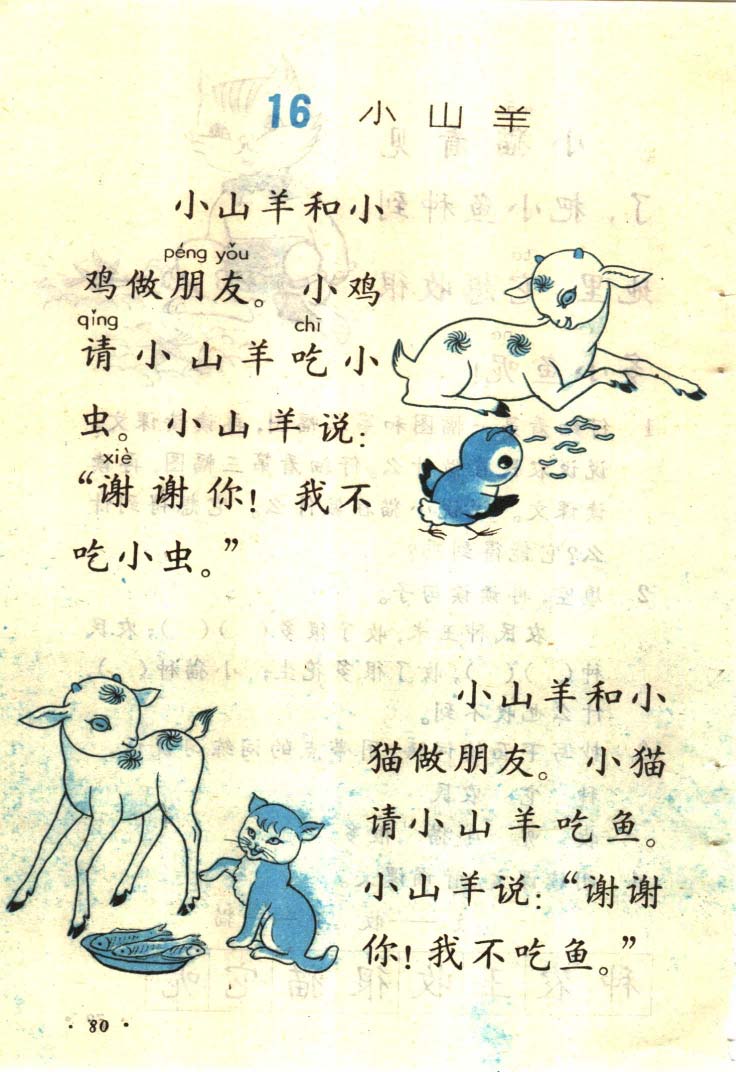 16 小山羊
小山羊和小
péng yǒu
鸡做朋友。小鸡
qǐng chī
请小山羊吃小
虫。小山羊说：
xiè
“谢谢你！我不
吃小虫。”
小山羊和小
猫做朋友。小猫
请小山羊吃鱼。
小山羊说：“谢谢
你！我不吃鱼。”
·80·